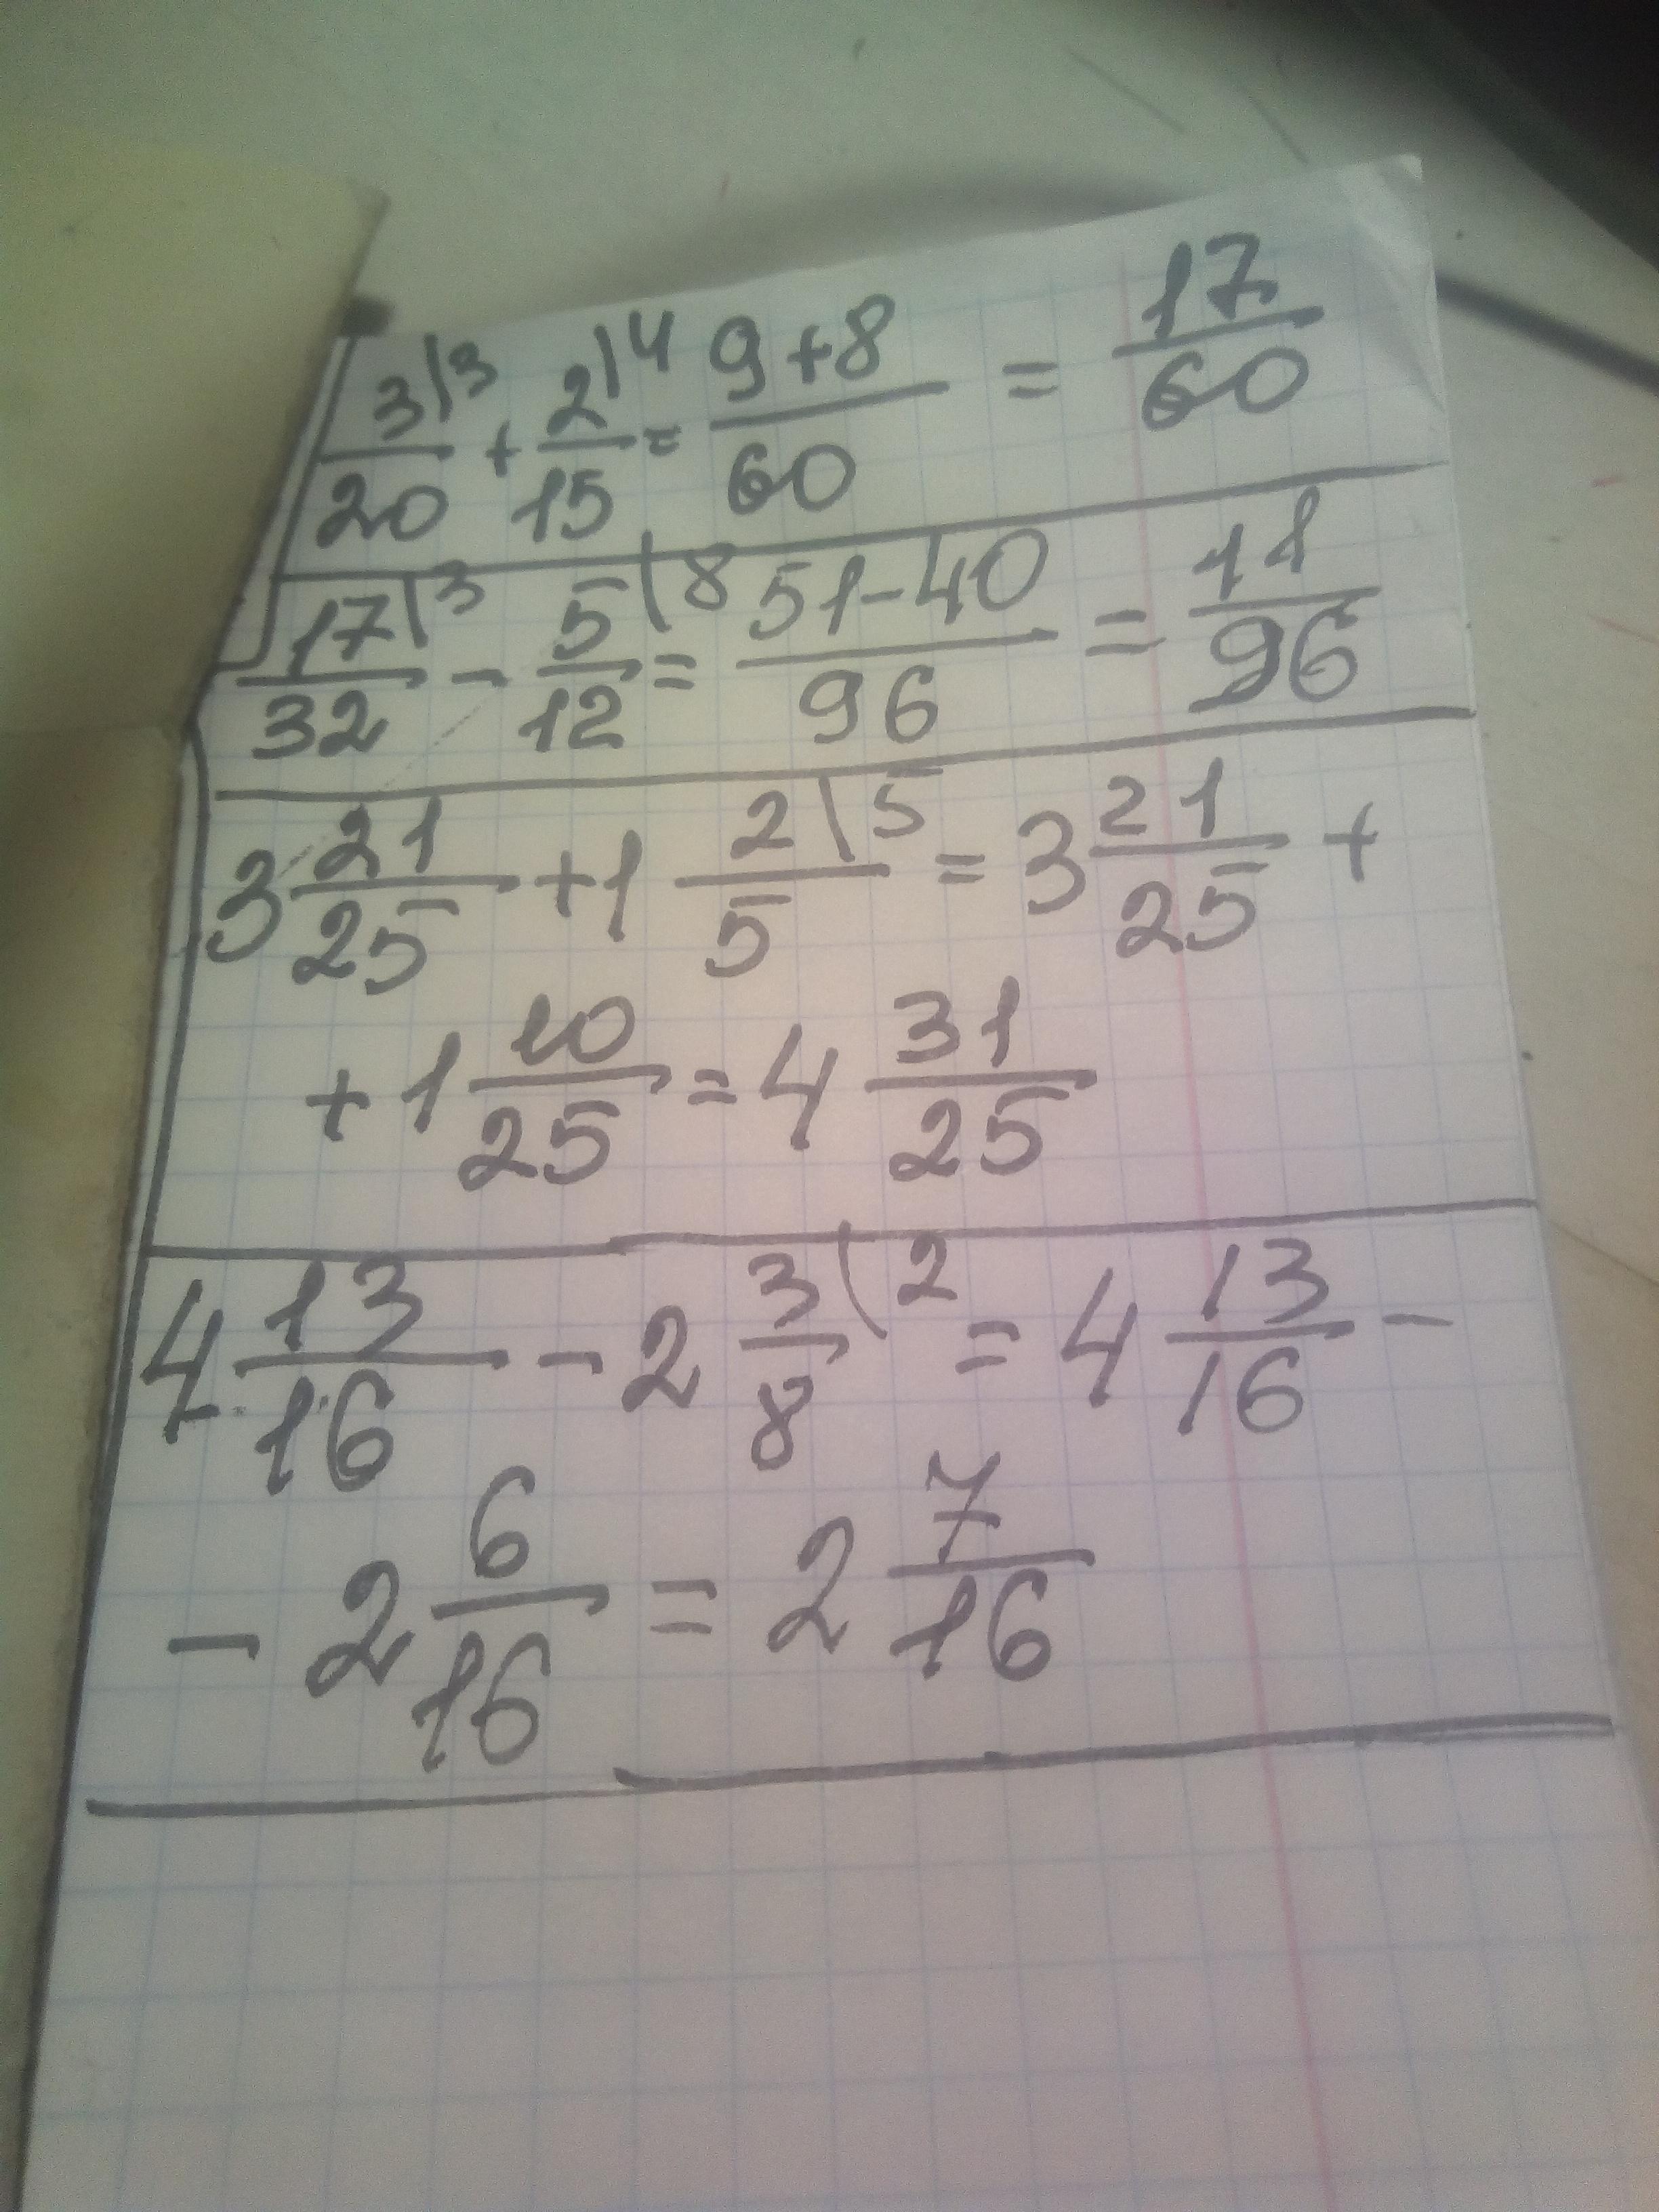 3\3/20 + 2\4/15 = 9+8/60 = 17/60
17\3/32 - 5\8/12 = 51-40/96 = 11/96
3 21/25 + 1 2\5/5 = 3 21/25 +
+ 1 10/25 = 4 31/25
4 13/16 - 2 3\2/8 = 4 13/16 -
- 2 6/16 = 2 7/16